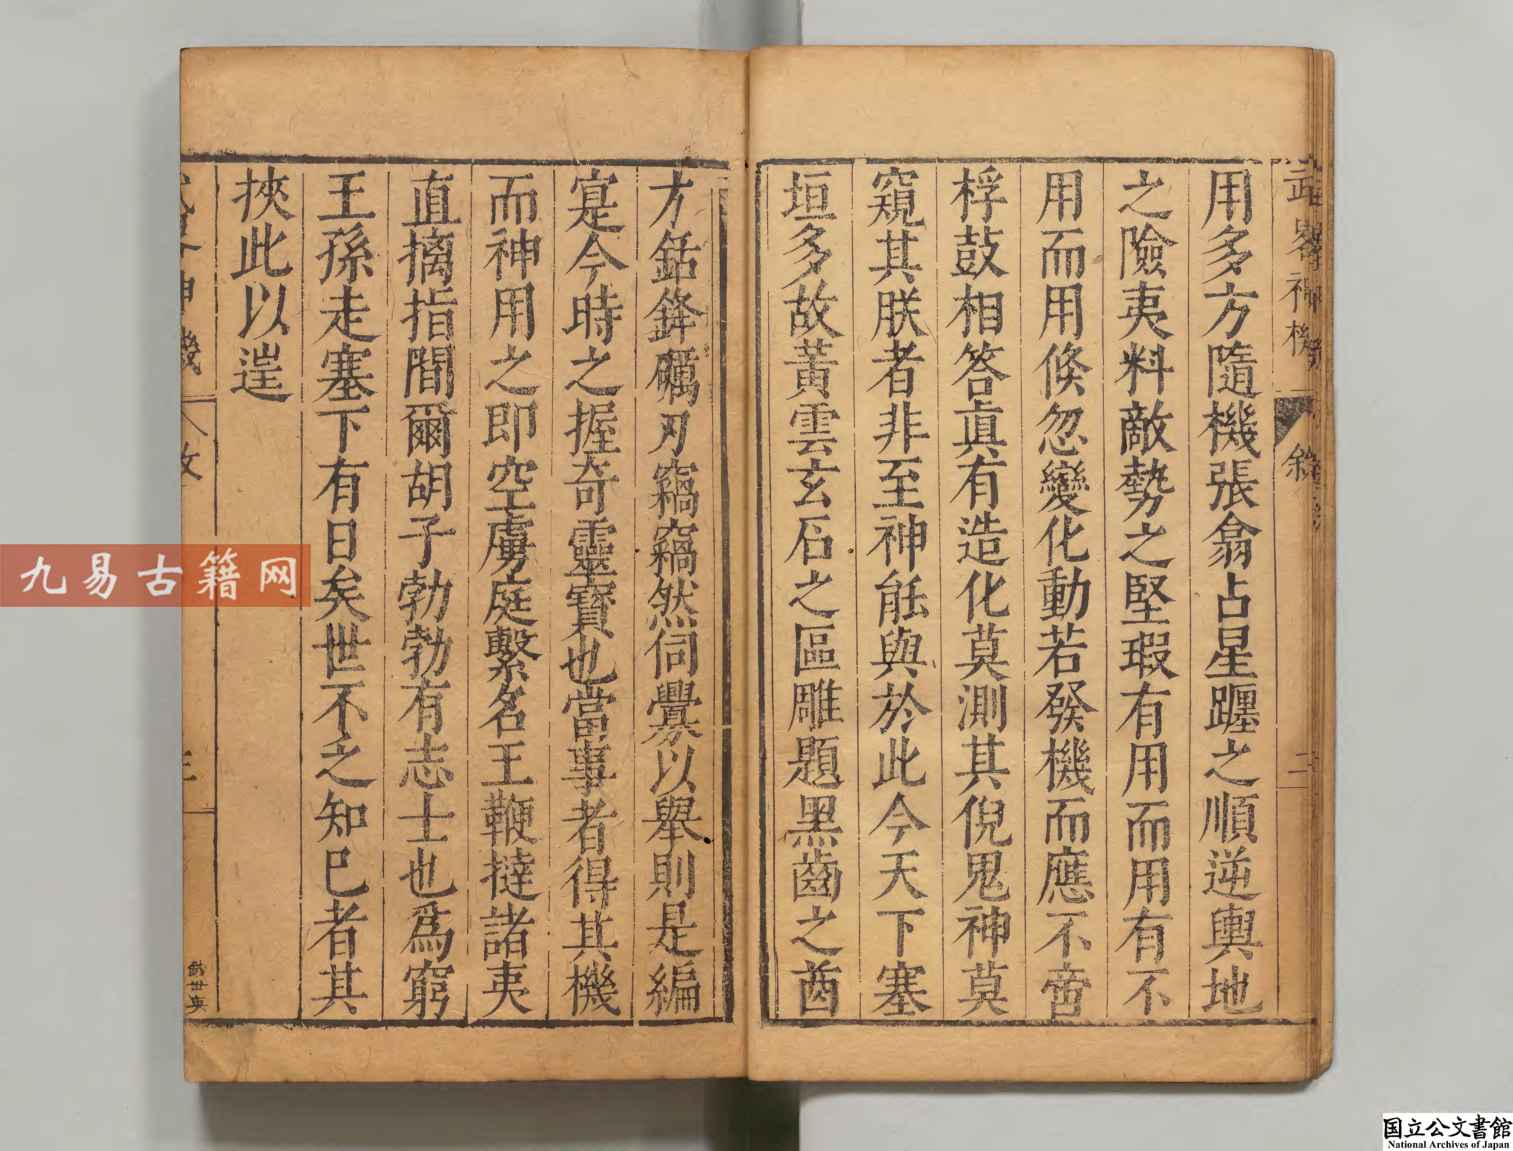 武畧神機
敘
二
用多方隨機張翕占星躔之順逆輿地
之險夷料敵勢之堅瑕有用而用有不
用而用倏忽變化動若發機而應不啻
桴鼓相答眞有造化莫測其倪鬼神莫
窺其朕者非至神能與於此今天下塞
垣多故黃雲玄石之區雕題黑齒之酋
方銛鋒礪刃竊竊然伺釁以舉則是編
寔今時之握奇靈寶也當事者得其機
而神用之即空虜庭繫名王鞭撻諸夷
直摘指間爾胡子勃勃有志士也爲窮
王孫走塞下有日矣世不乏知巳者其
挾此以逞
神機
三
九易古籍网
国立公文書館
National Archives of Japan